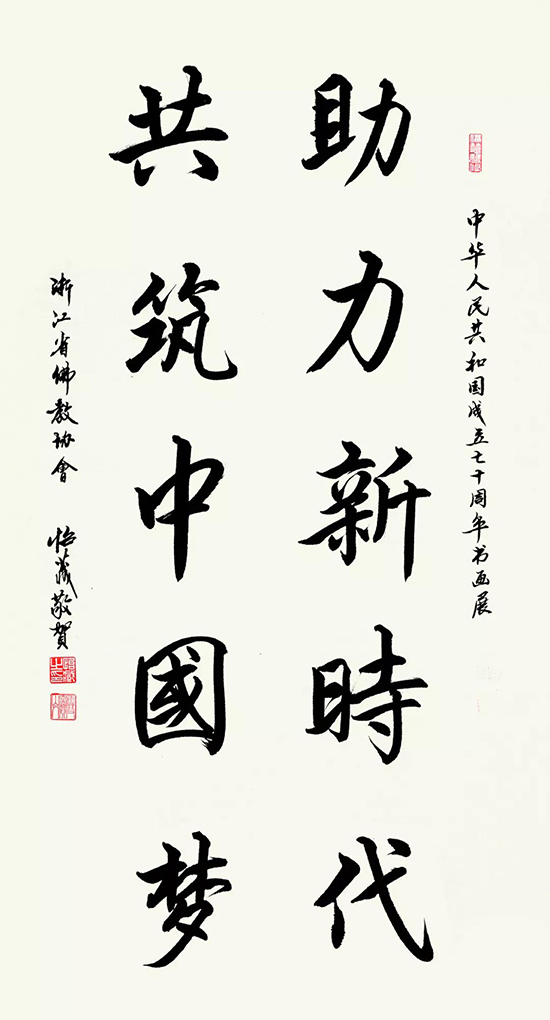 中华人民共和国成立七十周年书画展
助力新時代
共筑中國梦
浙江省佛教协會 怡藏敬贺